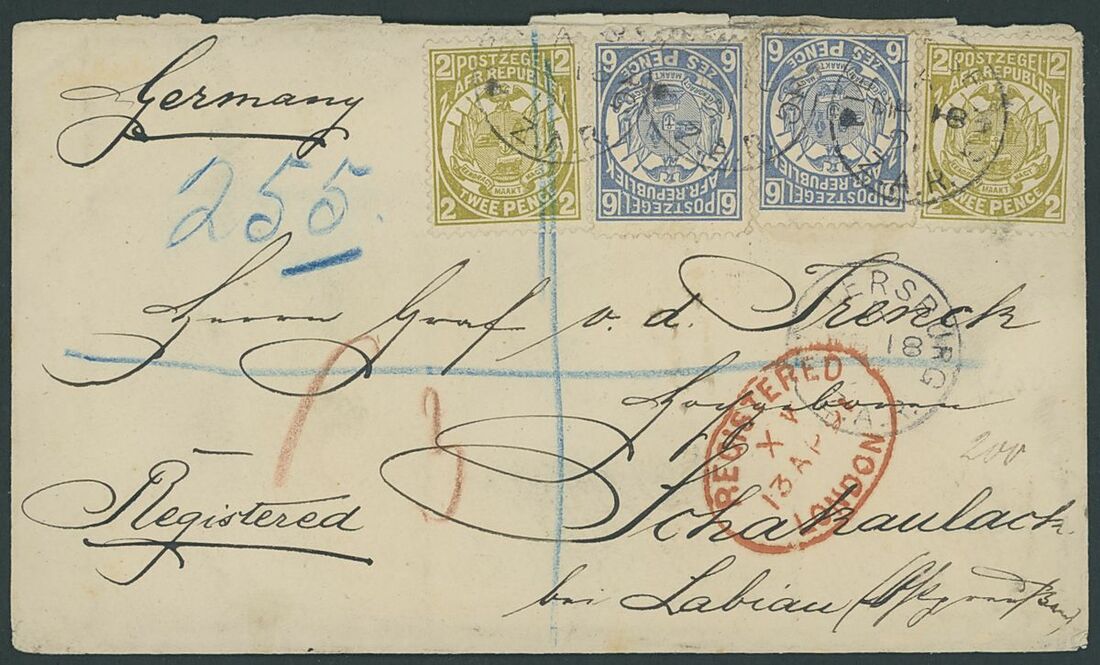 Germany
255.
2 POSTZEGEL 2
Z. AFR. REPUBLIEK
EENDRAGT MAAKT MAGT
2 TWEE PENCE 2
6 ZES PENCE 6
EENDRAGT MAAKT MAGT
AFR. REPUBLIEK
6 POSTZEGEL 6
6 ZES PENCE 6
EENDRAGT MAAKT MAGT
AFR. REPUBLIEK
6 POSTZEGEL 6
2 POSTZEGEL 2
Z. AFR. REPUBLIEK
EENDRAGT MAAKT MAGT
2 TWEE PENCE 2
Herrn Graf v. d. Trenck
ERSBURG
18
Z.A.R.
REGISTERED
X
13 AP
LONDON
Hochgeboren
200
Registered
Schakaulack
bei Labiau (Ostpreußen)